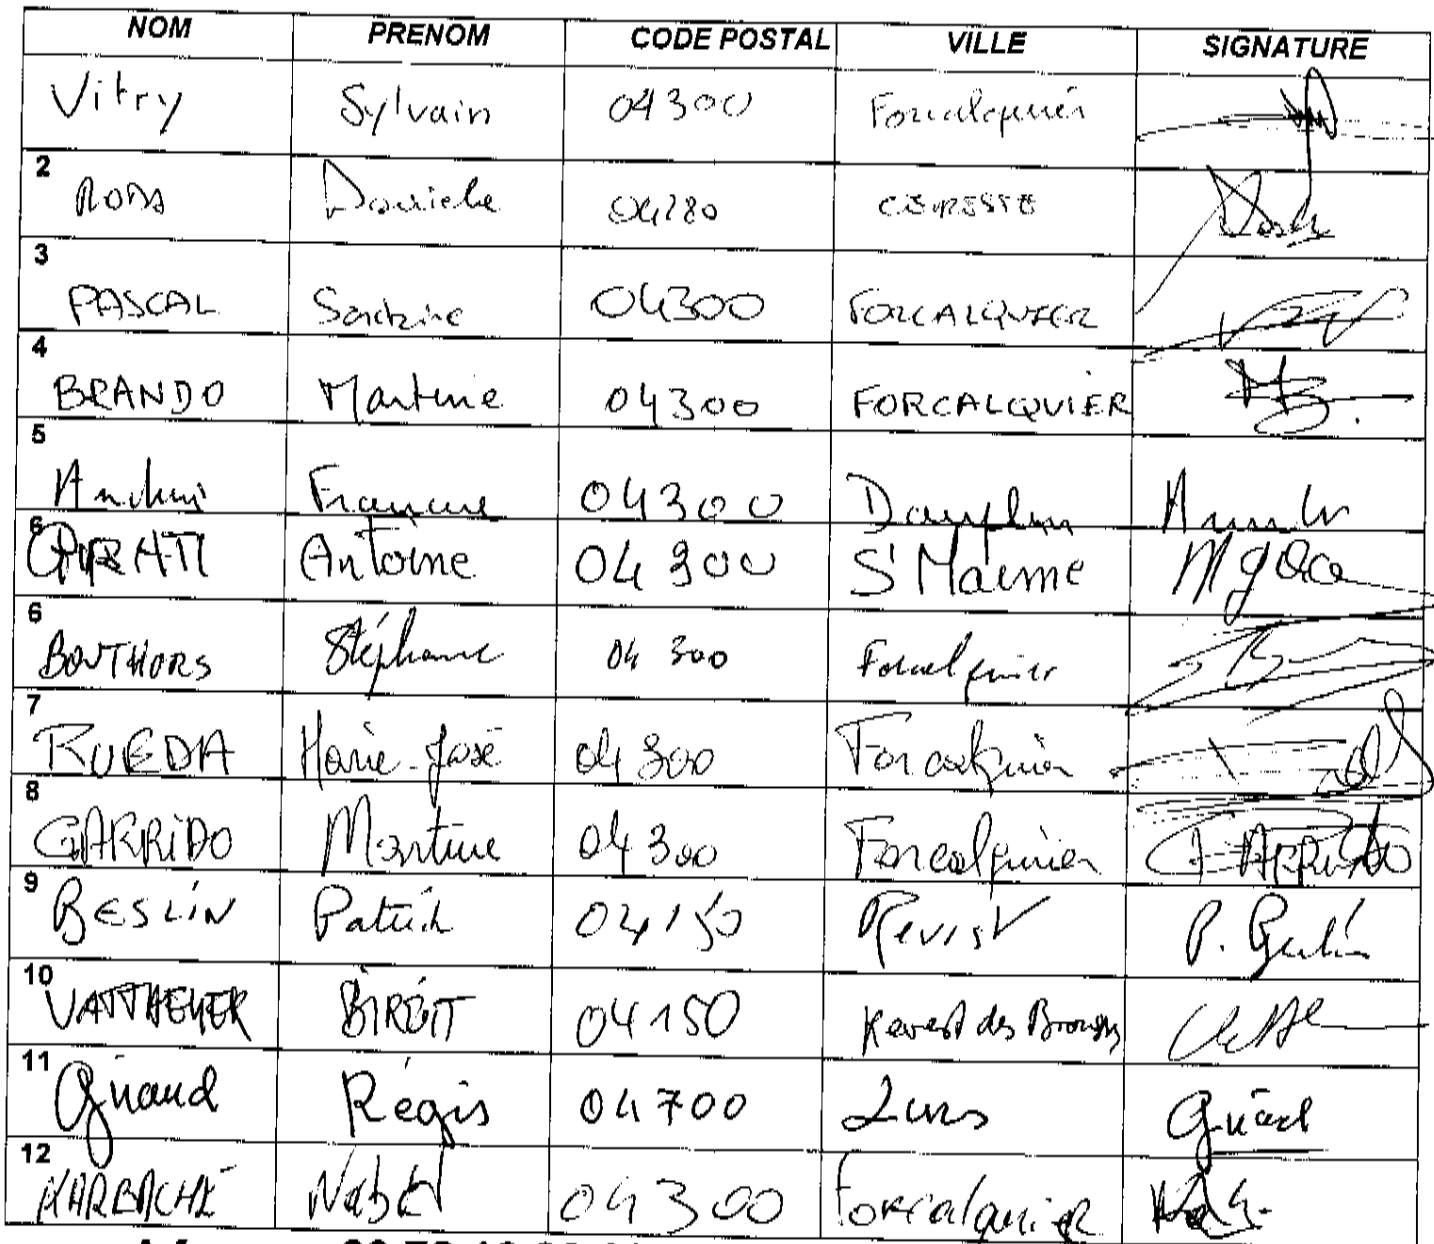 NOM PRENOM CODE POSTAL VILLE SIGNATURE
Vitry Sylvain 04300 Forcalquier
2 Danielle 04280 CEYRESTE
3 PASCAL Sandrine 04300 FORCALQUIER
4 BRANDO Martine 04300 FORCALQUIER
5 Francine 04300 Dauphin
6 Antoine 04300 St Maime
6 BOUTHORS Stéphane 04 300 Forcalquier
7 RUEDA Marie-José 04300 Forcalquier
8 GARRIDO Martine 04300 Forcalquier GARRIDO
9 BESLIN Patrick 04150 Revest P. Beslin
10 BIRGIT 04150 Revest des Brousses
11 Giraud Régis 04700 Lurs Giraud
12 KARBACHE Nabil 04300 Forcalquier